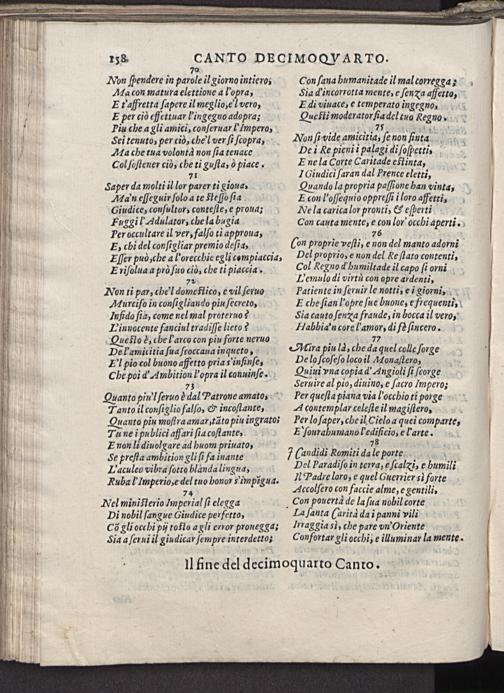 158. CANTO DECIMOQVARTO.
70
Non ſpendere in parole il giorno intiero;
Ma con matura elettione a l'opra,
E t'affretta ſapere il meglio, e'l vero,
E per ciò effettuar l'ingegno adopra;
Piu che a gli amici, conſeruar l'Impero,
Sei tenuto, per ciò, che'l ver ſi ſcopra,
Ma che tua volontà non ſia tenace
Col ſoſtener ciò, che ti guſta, ò piace.
71
Saper da molti il lor parer ti gioua,
Ma'n eſſeguir ſolo a te ſteſſo ſia
Giudice, conſultor, conteſte, e proua;
Fuggi l'Adulator, che la bugia
Per occultare il ver, falſo ti approua,
E, chi del conſigliar premio deſia,
Eſſer può, che a l'orecchie egli compiaccia,
E riſolua a prò ſuo ciò, che ti piaccia.
72
Non ti par, che'l domeſtico, e vil ſeruo
Murciſo in conſigliando piu ſecreto,
Infido ſia, come nel mal proteruo?
L'innocente fanciul tradiſſe lieto?
Queſto è, che l'arco con piu forte neruo
De l'amicitia ſua ſcoccaua inqueto,
E'l pio col buono affetto pria s'infinſe,
Che poi d'Ambition l'opra il conuinſe.
73
Quanto piu'l ſeruo è dal Patrone amato,
Tanto il conſiglio falſo, & incoſtante,
Quanto piu moſtra amar, tãto piu ingrato:
Tu ne i publici affari ſia coſtante.
E non li diuolgare ad huom priuato,
Se preſta ambition gli ſi fa inante
L'aculeo vibra ſotto blanda lingua,
Ruba l'Imperio, e del tuo honor s'impigua.
74
Nel miniſterio Imperial ſi elegga
Di nobil ſangue Giudice perfetto,
Cõ gli occhi pij toſto a gli error prouegga;
Sia a ſerui il giudicar ſempre interdetto;
Con ſana humanitade il mal corregga;
Sia d'incorrotta mente, e ſenza affetto,
E di viuace, e temperato ingegno,
Queſti moderator ſia del tuo Regno.
75
Non ſi vide amicitia, ſe non finta
De i Re pieni i palagi di ſoſpetti,
E ne la Corte Caritade eſtinta,
I Giudici ſaran dal Prence eletti,
Quando la propria paſſione han vinta,
E con l'oſſequio oppreſſi i loro affetti,
Ne la carica lor pronti, & eſperti
Con cauta mente, e con lor' occhi aperti.
76
Con proprie veſti, e non del manto adorni
Del proprio, e non del Reſtato contenti,
Col Regno d'humiltade il capo ſi orni
L'emulo di virtù con opre ardenti,
Patiente in ſeruir le notti, e i giorni,
E che ſian l'opre ſue buone, e frequenti,
Sia cauto ſenza fraude, in bocca il vero,
Habbia'n core l'amor, di fè ſincero.
77
Mira piu là, che da quel colle ſorge
De lo ſcoſeſo loco il Monaſtero,
Quiui vna copia d'Angioli ſi ſcorge
Seruire al pio, diuino, e ſacro Impero;
Per queſta piana via l'occhio ti porge
A contemplar celeſte il magiſtero,
Per lo ſaper, che il Cielo a quei comparte,
E'ſourahumano l'edificio, e l'arte.
78
I Candidi Romiti da le porte
Del Paradiſo in terra, e ſcalzi, e humili
Il Padre loro, e quel Guerrier sì forte
Accolſero con faccie alme, e gentili,
Con pouertà de la ſua nobil corte
La ſanta Carità da i panni vili
Irraggia sì, che pare vn'Oriente
Confortar gli occhi, e illuminar la mente.
Il fine del decimoquarto Canto.